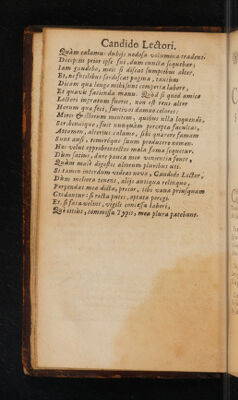 Candido Lectori.
Quàm calamus dubijs nodosa volumina tradens
Decepsit prior ipse sui, dum cuncta sequebar:
Iam gaudebo, mei si discat sumptibus alter.
Et, ne futilibus sordescat pagina, tantùm
Dicam quæ longo mihi sunt comperta labore,
Et quavis facienda manu. Quòd si quid amice
Lectori ingratum fuerit, non est reus alter
Horum quæ feci, furtivo damna colore:
Mores & illorum mentem, quibus ulla loquendi,
Scribendique, fuit nunquàm præcepta facultas,
Attamen, alterius calamo, sibi quærere famam
Sunt ausi, temerèque suum producere nomen.
Nos velut opprobria tectos mala fama sequetur.
Dum satius, dare pauca meo venientia fonte,
Quàm malè digestis alienum pluribus uti.
Si tamen interdum videas nova, Candide Lector,
Dum meliora tenent, alijs antiqua relinquo,
Perpendas mea dicta, precor, tibi vana priusquam
Credantur: si recta putes, optata peregi.
Et, si fata velint, vigili concessa labori,
Quò citius, commissa Typis, mea plura patebunt.